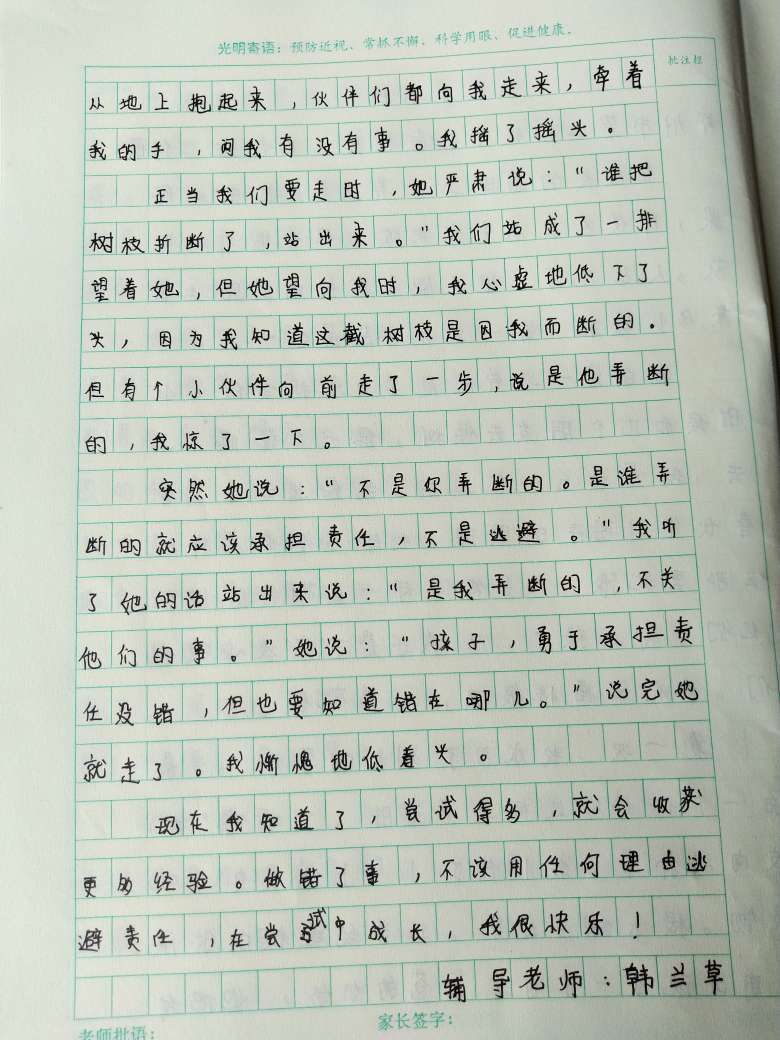 光明寄语：预防近视、常抓不懈、科学用眼、促进健康。
批注栏
从地上抱起来，伙伴们都向我走来，牵着
我的手，问我有没有事。我摇了摇头。
正当我们要走时，她严肃说：“谁把
树枝折断了，站出来。”我们站成了一排
望着她，但她望向我时，我心虚地低下了
头，因为我知道这截树枝是因我而断的。
但有个小伙伴向前走了一步，说是他弄断
的，我惊了一下。
突然她说：“不是你弄断的。是谁弄
断的就应该承担责任，不是逃避。”我听
了她的话站出来说：“是我弄断的，不关
他们的事。”她说：“孩子，勇于承担责
任没错，但也要知道错在哪儿。”说完她
就走了。我惭愧地低着头。
现在我知道了，尝试得多，就会收获
更多经验。做错了事，不该用任何理由逃
避责任，在尝试中成长，我很快乐！
辅导老师：韩兰草
老师批语：
家长签字：